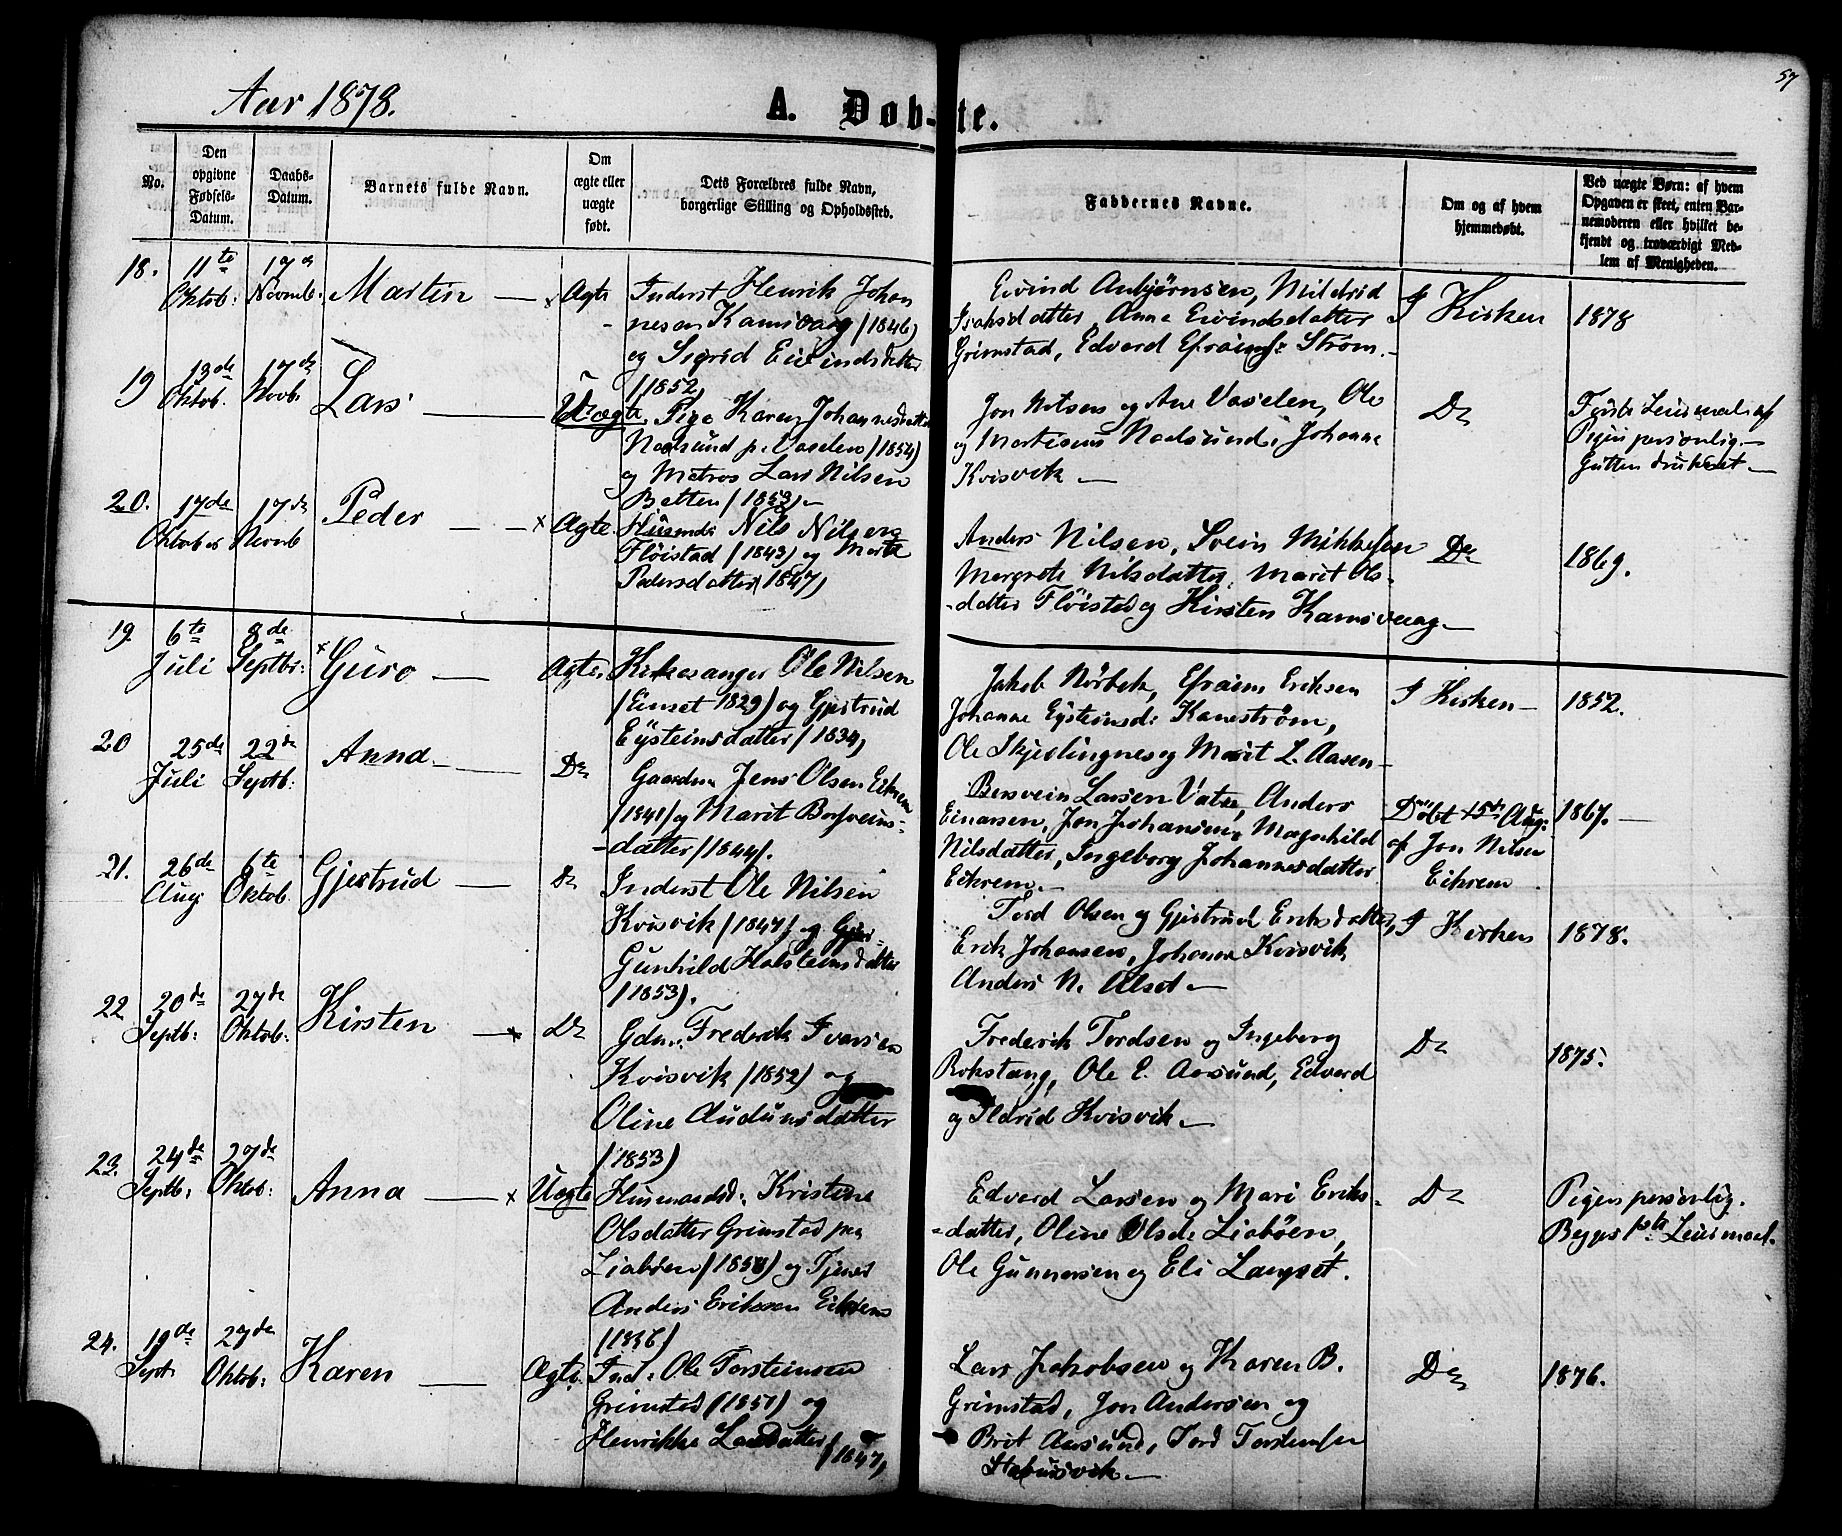 57
Aar 1878.
A. Døb-te.
No.
Den opgivne Fødsels-Datum.
Daabs-Datum.
Barnets fulde Navn.
Om ægte eller uægte født.
Dets Forældres fulde Navn, borgerlige Stilling og Opholdssted.
Faddernes Navne.
Om og af hvem hjemmedøbt.
Ved uægte Børn: af hvem Opgaven er skeet, enten Bar-nemoderen eller hvilket be-kjendt og troværdigt Med-lem af Menigheden.
18.
11te Oktob:
17de Novmb.
Martin —
Ægte
Inderst Henrik Johan
nesen Kamsvaag (1846)
og Sigrid Eivindsdatter
(1852)
Eivind Anbjørnsen, Mildrid
Isaksdatter, Anne Eivindsdatter
Grimstad, Edverd Efraims: Strøm.—
I Kirken
1878
19
13de Oktob.
17de Novb.
Lars —
Uægte
Pige Karen Johannesdatter
Naalsund p. Vaselen (1854)
og Matros Lars Nilsen
Betten (1853)—
Jon Nilsen og Ane Vaselen, Ole
og Martinus Naalsund, Johanne
Kvisvik —
Do
Første Leiermaal af
Pigen personlig.—
Gutten druknet —
20.
17de Oktober
17de Novmb
Peder — — ×
Ægte
Husmd: Nils Nilsen
Fløistad (1843) og Marte
Pedersdatter (1847)
Anders Nilsen, Svein Mikkelsen
Margrete Nilsdatter, Marit Ols-
-datter Fløistad og Kirsten Kamsvaag—
Do
1869.
19.
6te Juli
8de Septbr:
× Guro —
Ægte,
Kirkesanger Ole Nilsen
(Einset 1829) og Gjertrud
Eÿsteinsdatter (1834)
Jakob Nørbek, Efraim Eriksen
Johanne Eÿsteinsd: Kanestrøm,
Ole Skjerlingnes og Marit L. Aasen—
I Kirken—
1852.
20
25de Juli
22de Septb:
Anna —
Do
Gaardm Jens Olsen Eikrem
(1841) og Marit Bersveins-
-datter (1844).
Bersvein Larsen Vatn, Anders
Einarsen, Jon Johansen, Magnhild
Nilsdatter, Ingeborg Johannesdatter
Eikrem.—
Døbt 15de Aug:
af Jon Nilsen
Eikrem
1867. —
21.
26de Aug
6te Oktob.
Gjertrud —
Do
Inderst Ole Nilsen
Kvisvik (1847) og
Gunhild Halsteinsdatter
(1853).
Tord Olsen og Gjertrud Eriksdatter,
Erik Johansen, Johanne Kvisvik
Anders N. Alset —
I Kirken
1878.
22
20de Septb:
27de Oktob:
Kirsten — ×
Do
Gdm: Frederik Ivarsen
Kvisvik (1852) og
Oline Audunsdatter
(1853)
Frederik Tordsen og Ingeborg
Rokstang, Ole E. Aarsund, Edverd
og Ildrid Kvisvik —
Do
1875.
23.
24de Septb:
27de Oktob:
Anna — ×
Uægte
Husmandsd: Kristine
Olsdatter Grimstad paa
Liabøen (1858) og Tjener
Anders Eriksen Eikrem
(1856)
Edverd Larsen og Mari Eriks-
-datter, Oline Olsd: Liabøen,
Ole Gunnarsen og Eli Langset.
Do
Pigen personlig.
Begges 1ste Leiermaal.
24.
19de Sept
27de Oktob:
Karen —
Ægte.
Ind: Ole Torsteinsen
Grimstad (1851) og
Henrikke Larsdatter
(1847)
Lars Jakobsen og Karen B.
Grimstad, Jon Andersen og
Brit Aarsund, Tord Torsteinsen
Do
1876.